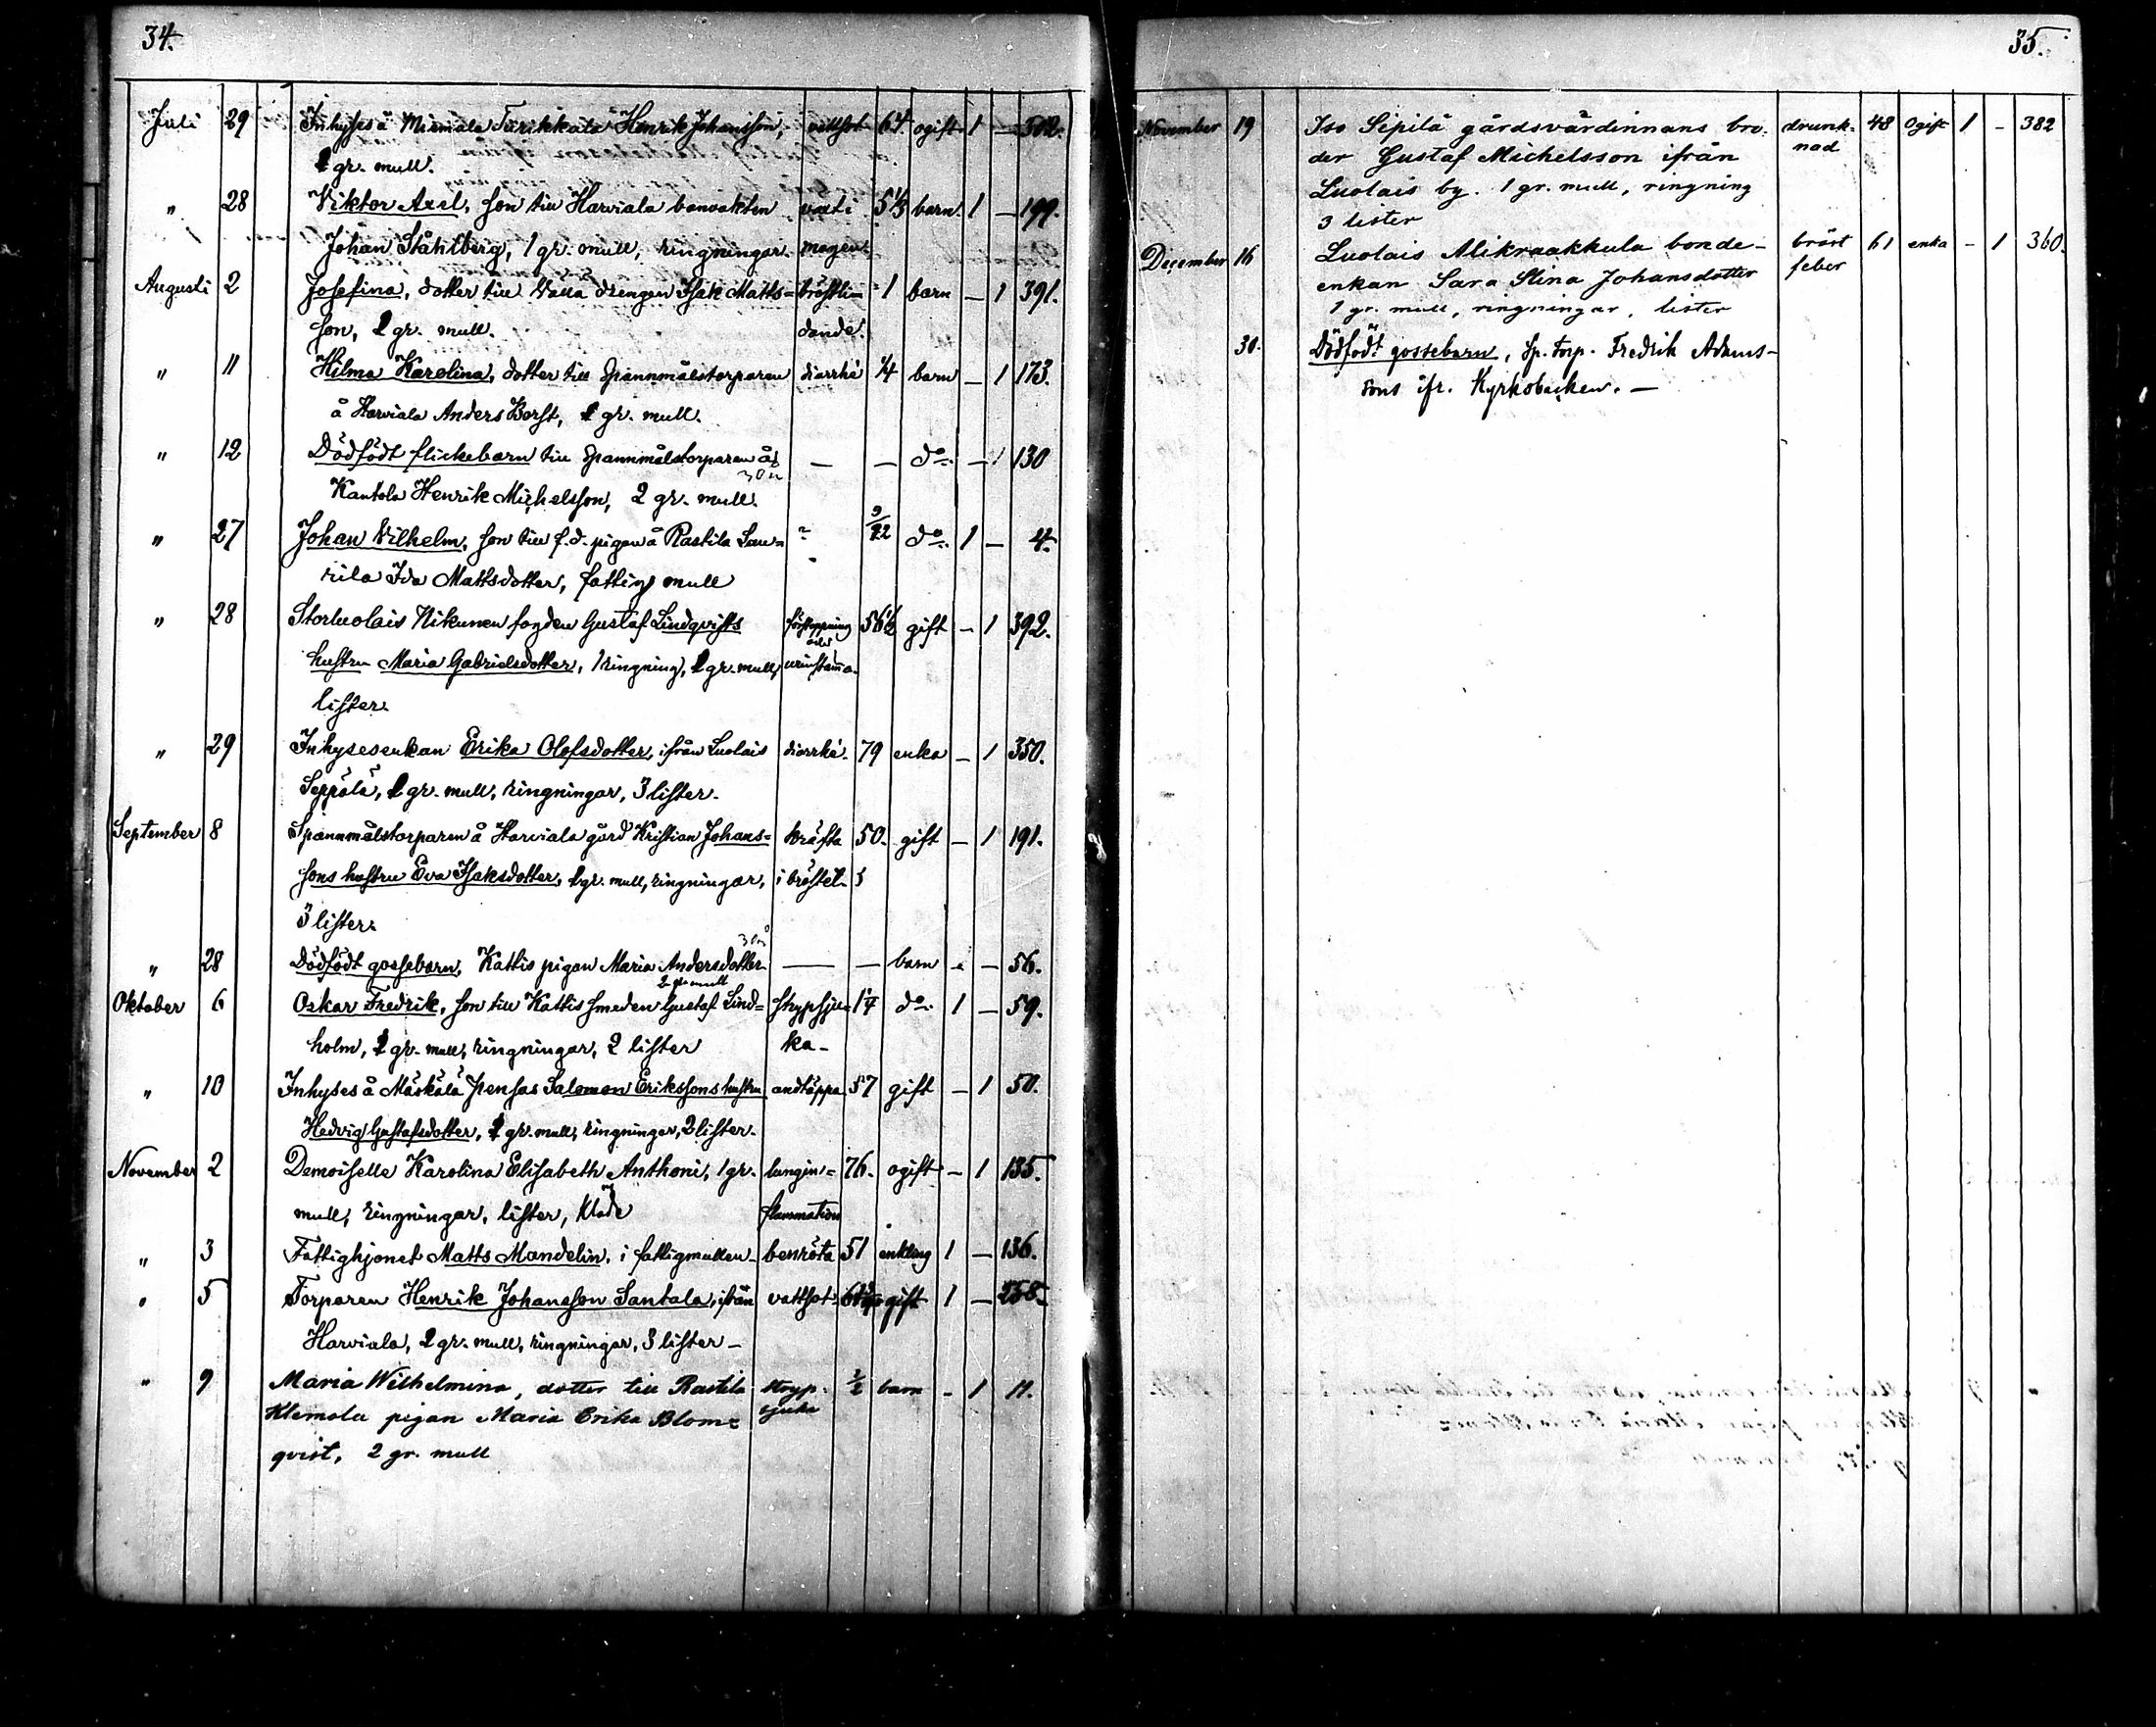 34.
Juli 29 Inhyses å Miemala Turikkala Henrik Johansson, vattsot 64 ogift 1 — 502.
1 gr. mull.
" 28 Viktor Axel, son till Harviala banvakten vatt i 5 1/3 barn 1 — 199.
Johan Ståhlberg, 1 gr. mull, ringningar. magen
Augusti 2 Josefina, dotter till drengen Isak Matts= bröstli= 1 barn — 1 391.
son, 2 gr. mull. dande
" 11 Hilma Karolina, dotter till Spannmålstorparen diarrhé 1/4 barn — 1 173.
å Harviala Anders Borst, 2 gr. mull.
" 12 Dödfödt flickebarn till Spannmålstorparen å — — do — 1 130
Kantola Henrik Michelsson, 2 gr. mull.
" 27 Johan Vilhelm, son till f.d. pigan å Rastila Lau= ? do 1 — 4.
rila Ida Mattsdotter, fattig mull
" 28 Storluolais Nikunen fogden Gustaf Lindqvists förstoppning 56 1/2 gift — 1 392.
hustru Maria Gabrielsdotter, 1 ringning, 2 gr. mull, urinstämma
lister.
" 29 Inhysesenkan Erika Olofsdotter, ifrån Luolais diarrhé 79 enka — 1 350.
Seppälä, 2 gr. mull, ringningar, 3 lister.
September 8 Spannmålstorparen å Harviala gård Kristian Johans= kräfta 50. gift — 1 191.
sons hustru Eva Isaksdotter, 1 gr. mull, ringningar, i bröstet
3 lister.
" 28 Dödfödt gossebarn, Kattis pigan Maria Andersdotter — — barn — 56.
2 gr. mull
Oktober 6 Oskar Fredrik, son till Kattis smeden Gustaf Lind= strypsju= 1 1/4 do 1 — 59.
holm, 2 gr. mull, ringningar, 2 lister ka
" 10 Inhyses å Mäskälä Pensas Salomon Erikssons hustru andtäppa 57 gift — 1 50.
Hedvig Gustafsdotter, 2 gr. mull, ringningar, 2 lister.
November 2 Demoiselle Karolina Elisabeth Anthoni, 1 gr. lungin= 76. ogift — 1 135.
mull, ringningar, lister, kläde flammation
" 3 Fattighjonet Matts Mandelin, i fattigmullen benröta 51 enkling 1 — 136.
" 5 Torparen Henrik Johansson Santala, ifrån vattsot gift 1 — 258.
Harviala, 2 gr. mull, ringningar, 3 lister
" 9 Maria Wilhelmina, dotter till Rastila stryp- 1/2 barn — 1 11.
Klemola pigan Maria Erika Blom= sjuka
qvist, 2 gr. mull
35.
November 19 Iso Sipilä gårdsvärdinnans bro- drunk- 48 ogift 1 — 382
der Gustaf Michelsson ifrån nad
Luolais by. 1 gr. mull, ringning
3 lister
December 16 Luolais Alikraakkula bonde- bröst 61 enka — 1 360.
enkan Sara Stina Johansdotter feber
1 gr. mull, ringningar, lister
30. Dödfödt gossebarn, Sp. torp. Fredrik Adams-
sons ifr. Kyrkobacken. —